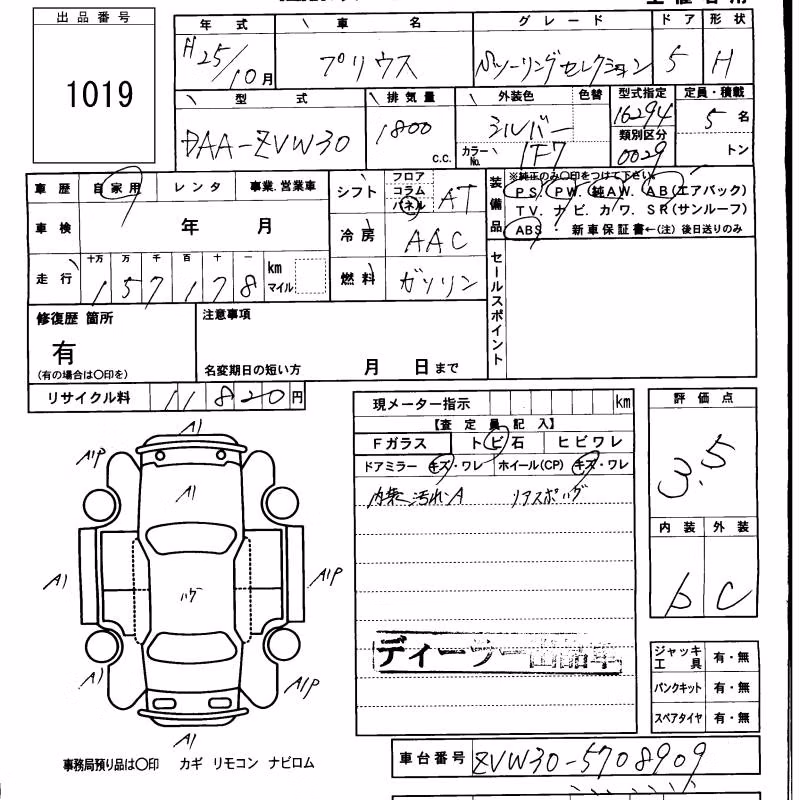 出品番号
1019
年式 車名 グレード ドア 形状
H25/10月 プリウス Sツーリングセレクション 5 H
型式 排気量 外装色 色替 型式指定 定員・積載
DAA-ZVW30 1800 c.c. シルバー 16294 5名
カラーNo. 1F7 類別区分 0029 トン
車歴 自家用 レンタ 事業.営業車
シフト フロア コラム パネル AT
装備品 ※純正のみ○印をつけて下さい。
PS. PW. 純AW. AB(エアバック)
TV. ナビ. カワ. SR(サンルーフ)
ABS・ 新車保証書←(注) 後日送りのみ
車検 年 月
冷房 AAC
走行 十万 万 千 百 十 一
157178 km マイル
燃料 ガソリン
セールスポイント
修復歴 箇所
有
(有の場合は○印を)
注意事項
名変期日の短い方 月 日まで
リサイクル料 11820円
現メーター指示 km
【査定員記入】
Fガラス トビ石 ヒビワレ
ドアミラー キズ・ワレ ホイール(CP) キズ・ワレ
内装汚れA リアスポハゲ
評価点
3.5
内装 外装
b C
A1
A1P
A1
A1
ハゲ
A1P
A1
A1P
A1
ディーラー出品車
ジャッキ工具 有・無
パンクキット 有・無
スペアタイヤ 有・無
車台番号 ZVW30-5708909
事務局預り品は○印 カギ リモコン ナビロム